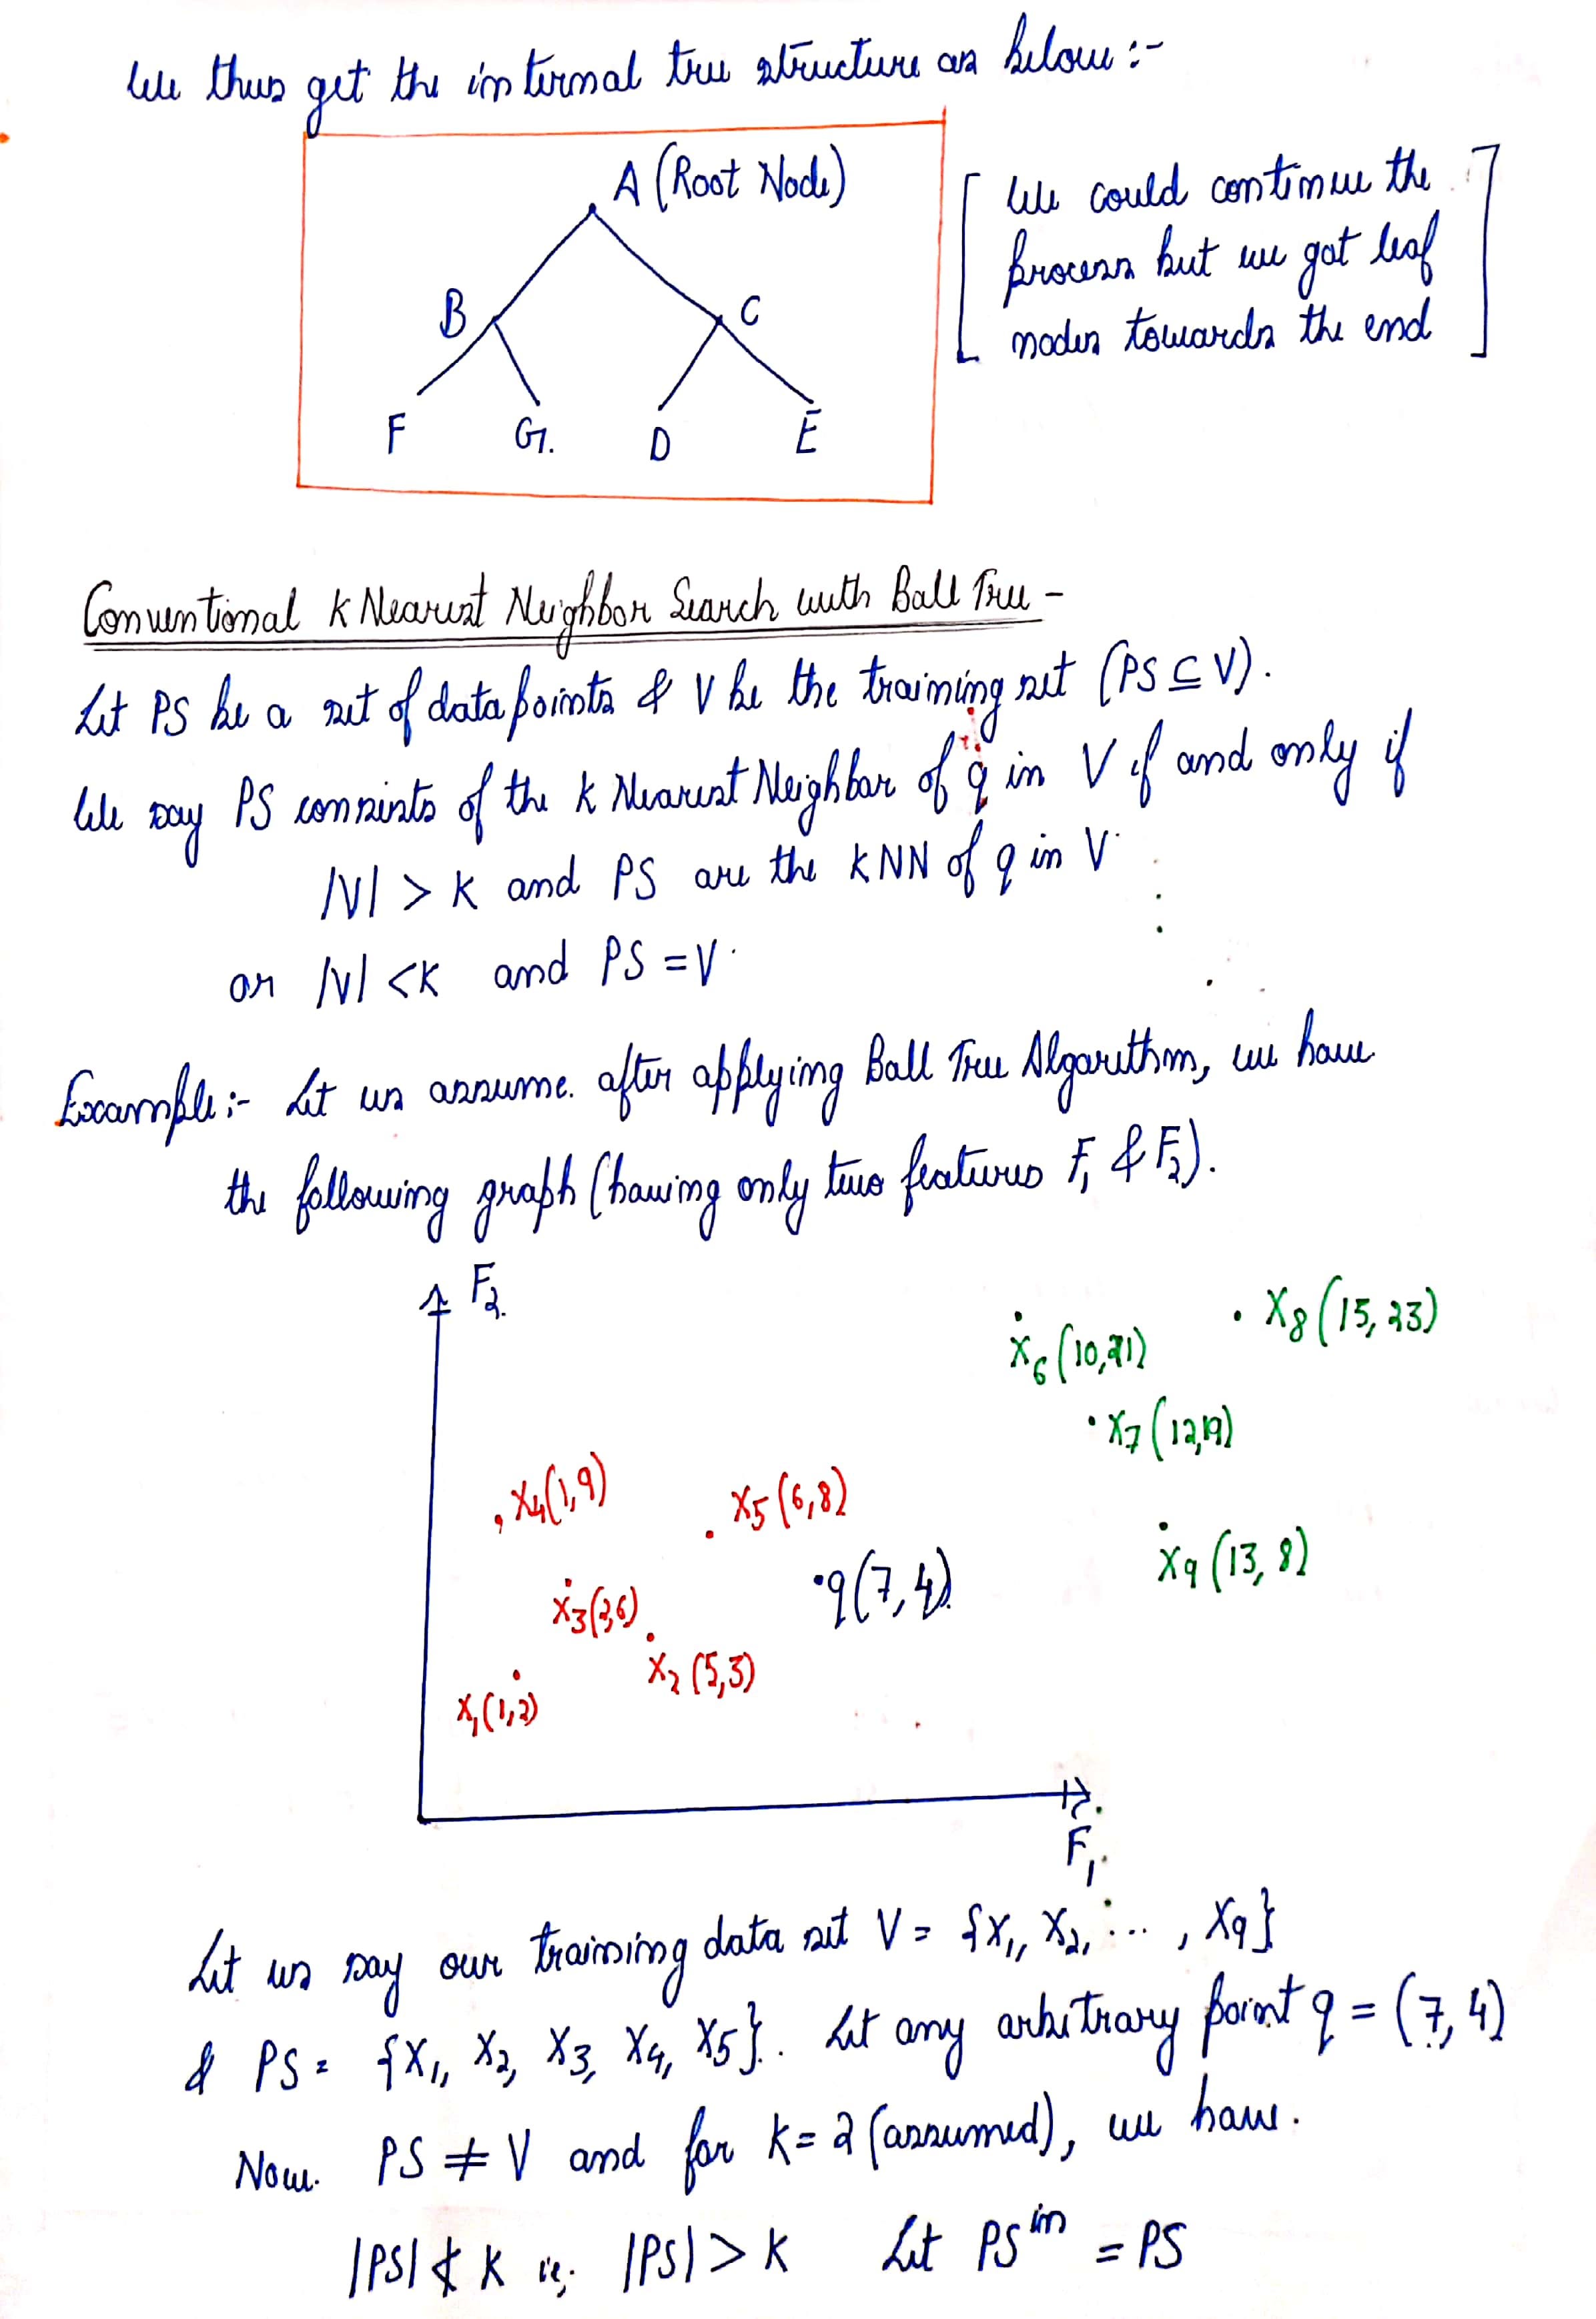 We thus get the internal tree structure as below :-
A (Root Node)
B
C
F
G.
D
E
[ We could continue the
process but we got leaf
nodes towards the end ]
Conventional k Nearest Neighbor Search with Ball Tree -
Let PS be a set of data points & V be the training set (PS ⊆ V).
We say PS consists of the k Nearest Neighbor of q in V if and only if
|V| > K and PS are the KNN of q in V
or |V| < K and PS = V.
Example :- Let us assume. after applying Ball Tree Algorithm, we have
the following graph (having only two features F₁ & F₂).
F₂.
X₆ (10,21)
X₈ (15, 23)
X₇ (12,19)
X₄(1,9)
X₅ (6,8)
X₉ (13, 8)
q(7,4)
X₃(3,6)
X₂ (5,3)
X₁(1,2)
F₁
Let us say our training data set V = {X₁, X₂, ... , X₉}
& PS = {X₁, X₂, X₃, X₄, X₅}. Let any arbitrary point q = (7, 4)
Now. PS ≠ V and for K = 2 (assumed), we have.
|PS| ≮ K ie, |PS| > K Let PSⁱⁿ = PS